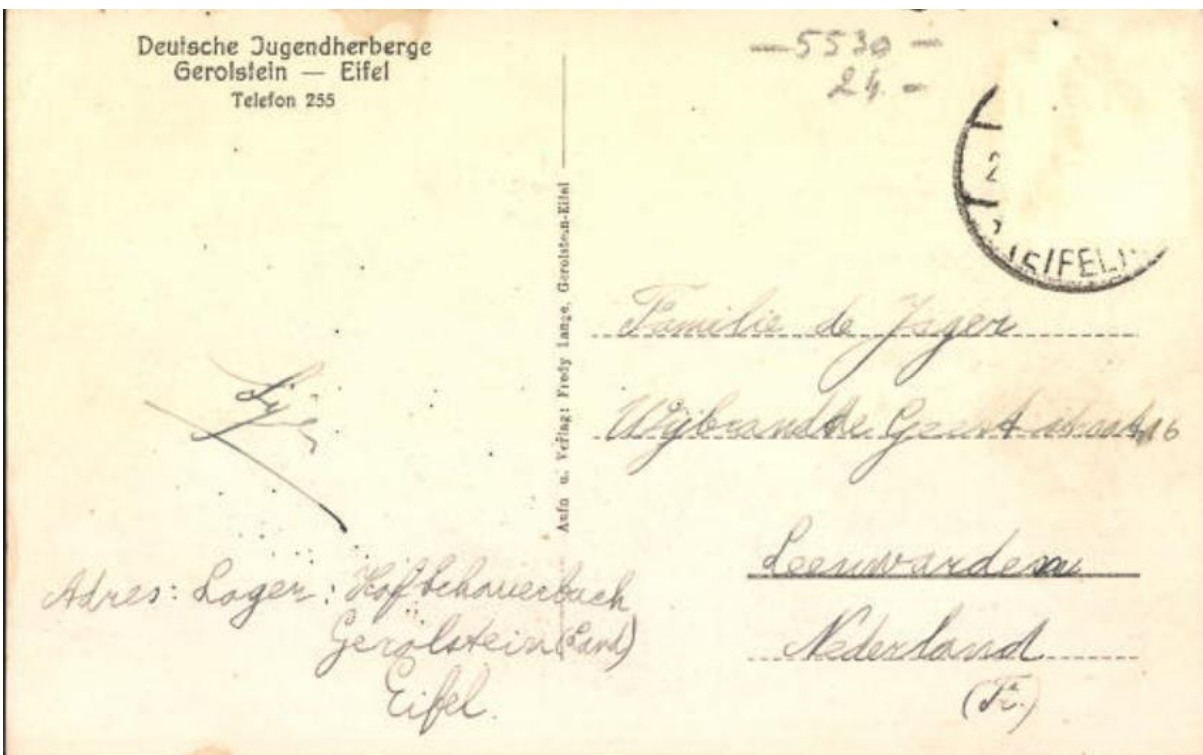 Deutsche Jugendherberge
Gerolstein — Eifel
Telefon 255
— 5530 —
24. –
2
(EIFEL)
Aufn u. Verlag: Fredy Lange, Gerolstein-Eifel
Familie de Jager
Wijbrand de Geest straat 16
Leeuwarden
Nederland
(Fr.)
Adres: Lager:
Gerolstein (Land)
Eifel.